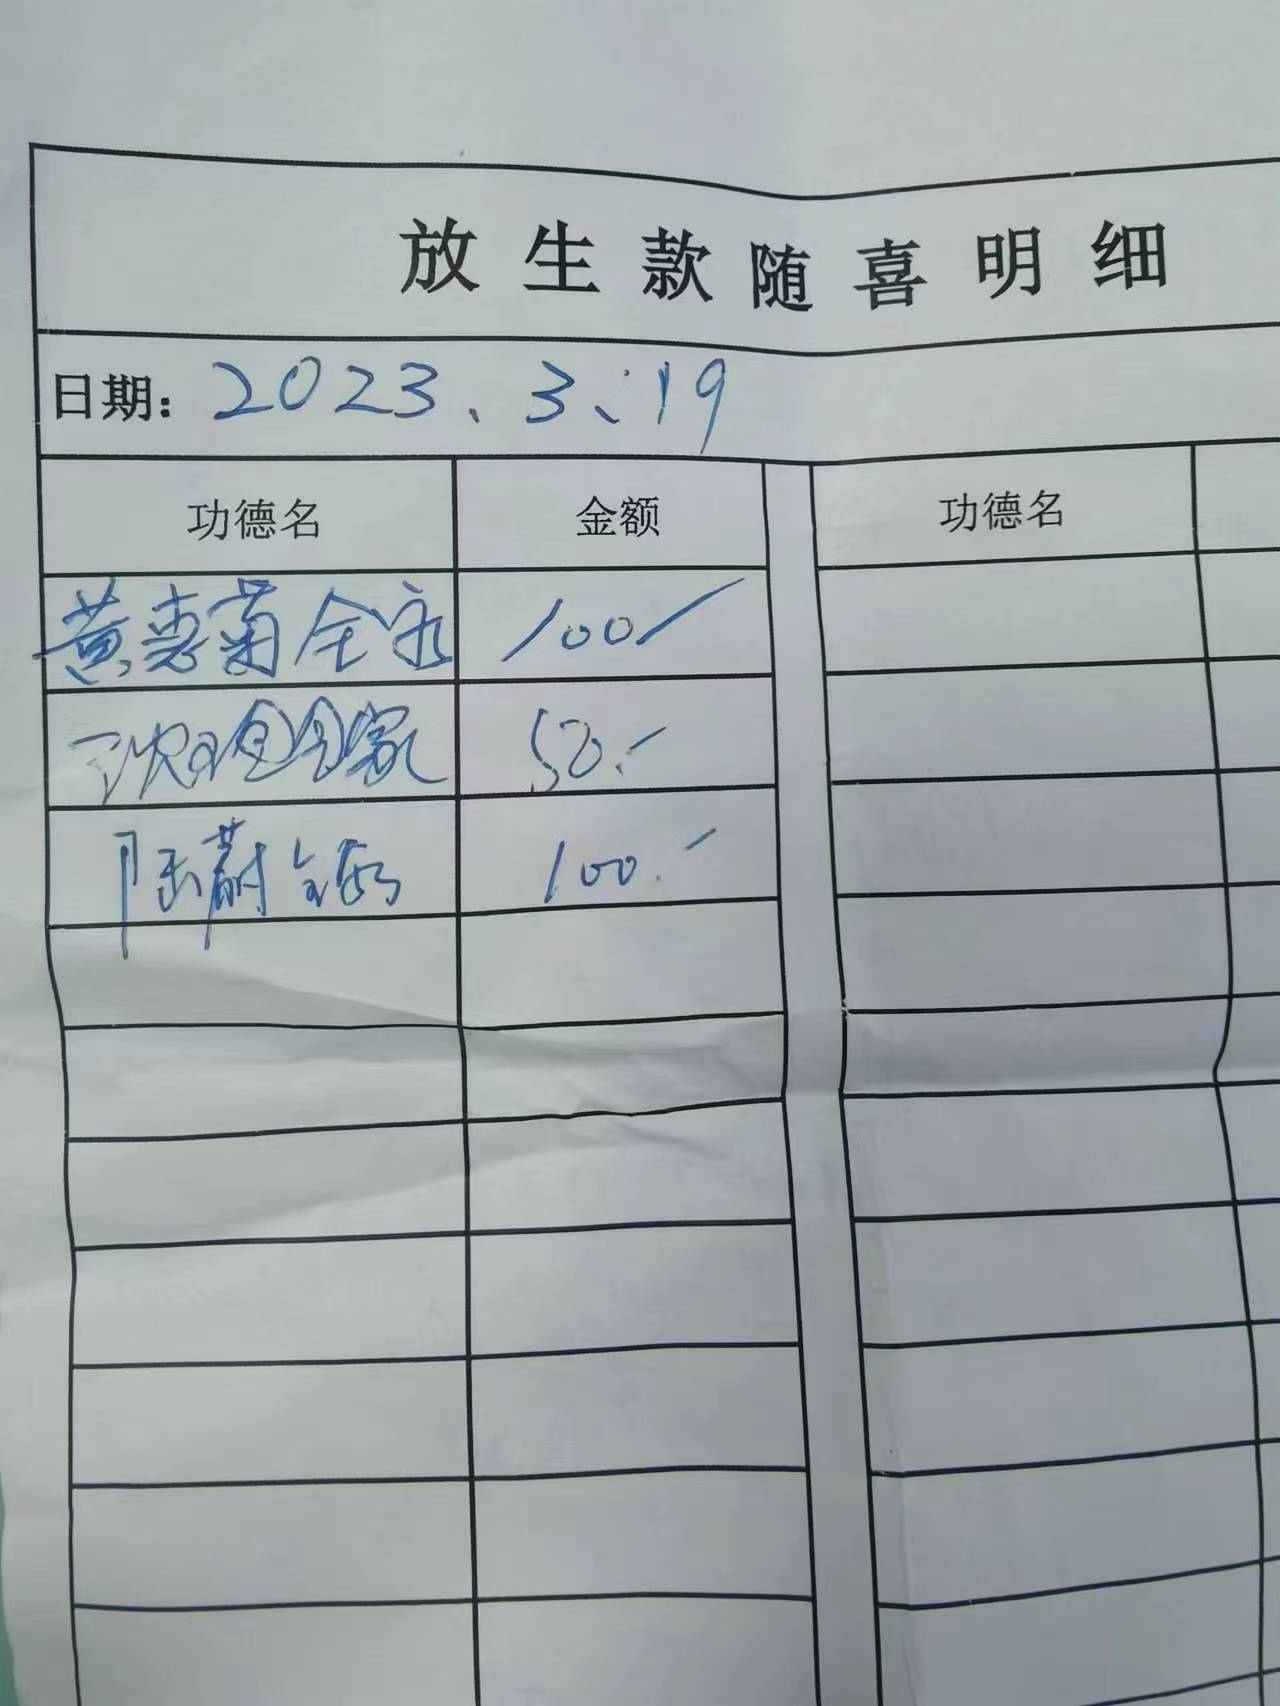 放生款随喜明细
日期: 2023.3.19
功德名 金额 功德名
黄惠菊全家 100
全家 50.
陆蔚全家 100.